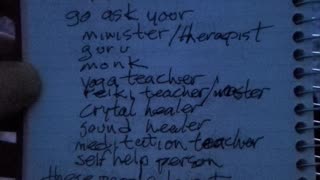 go ask your
minister/therapist
guru
monk
yoga teacher
Reiki teacher/master
crytal healer
sound healer
meditation teacher
self help person